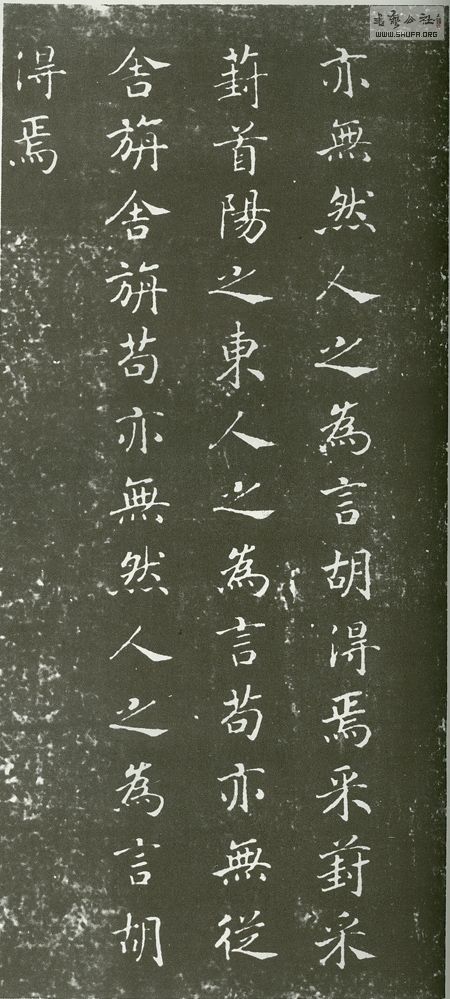 書藝公社
WWW.SHUFA.ORG
亦無然人之為言胡得焉采葑采
葑首陽之東人之為言苟亦無從
舍旃舍旃苟亦無然人之為言胡
得焉